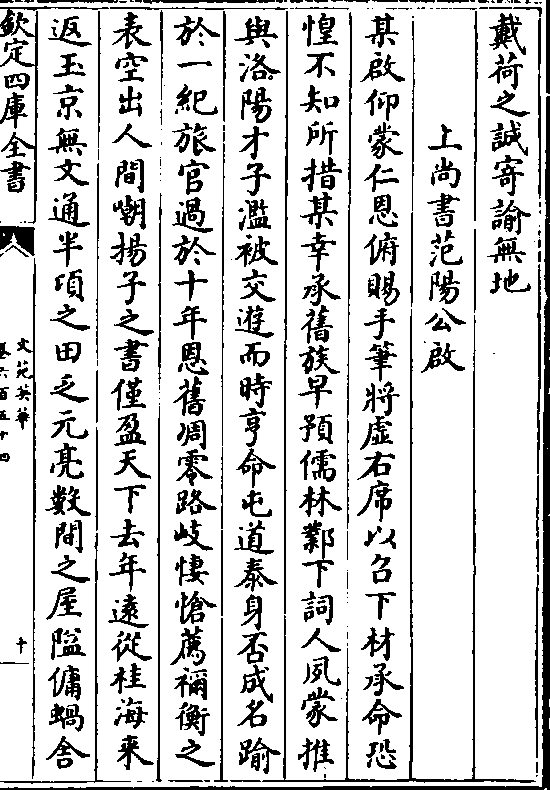 戴荷之誠寄諭無地
上尚書范陽公啟
某啟仰蒙仁恩俯賜手筆將虛右席以召下材承命恐
惶不知所措某幸承舊族早預儒林鄴下詞人夙蒙推
與洛陽才子濫被交遊而時亨命屯道泰身否成名踰
於一紀旅宦過於十年恩舊凋零路岐悽愴薦禰衡之
表空出人間嘲揚子之書僅盈天下去年遠從桂海來
返玉京無文通半頃之田乏元亮數間之屋隘傭蝸舍
欽定四庫全書
文苑英華
卷六百五十四
十